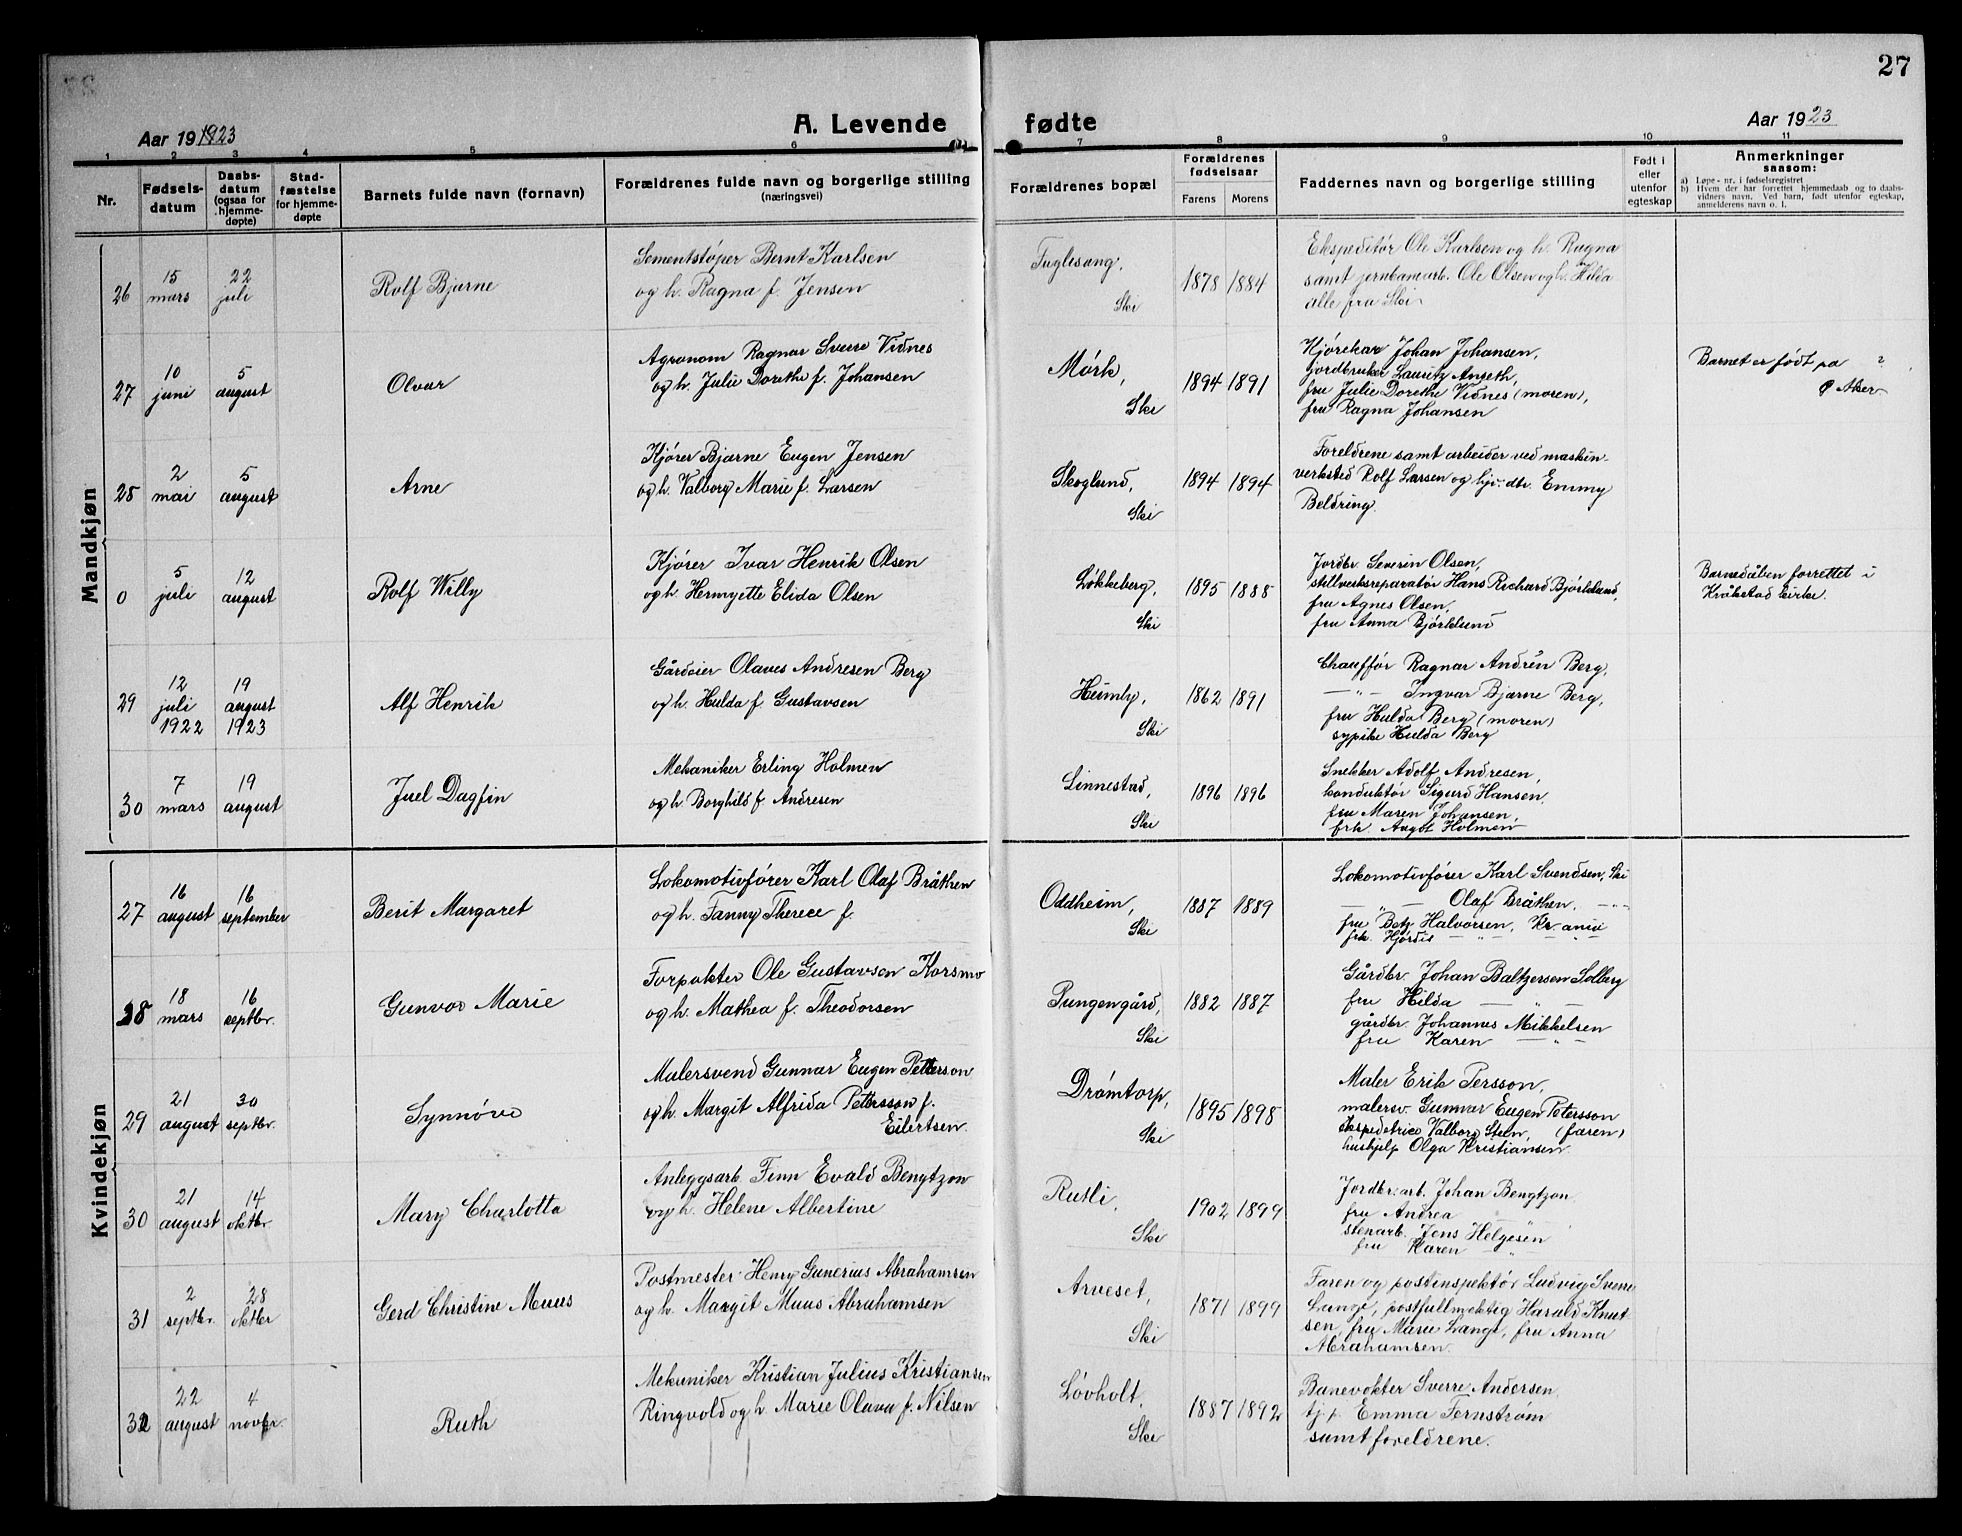 27
A. Levende fødte
Aar 19 1923
Aar 1923
1 2 3 4 5 6 7 8 9 10 11
Nr.
Fødselsdatum
Daabsdatum (ogsaa for hjemmedøpte)
Stadfæstelse for hjemmedøpte
Barnets fulde navn (fornavn)
Forældrenes fulde navn og borgerlige stilling
(næringsvei)
Forældrenes bopæl
Forældrenes fødselsaar
Farens Morens
Faddernes navn og borgerlige stilling
Født i eller utenfor egteskap
Anmerkninger
saasom:
a) Løpe-nr. i fødselsregistret
b) Hvem der har forrettet hjemmedaab og to daabs-
vidners navn. Ved barn, født utenfor egteskap,
anmelderens navn o. l.
Mandkjøn
26
15 mars
22 juli
Rolf Bjarne
Sementstøper Bernt Karlsen
og h. Ragna f. Jensen
Fuglesang,
Ski
1878 1884
Ekspeditør Ole Karlsen og h. Ragna
samt jernbanarb. Ole Olsen og h. Hilda
alle fra Ski
27
10 juni
5 august
Olvar
Agronom Ragnar Sverre Vidnes
og h. Julie Dorethe f. Johansen
Mørk,
Ski
1894 1891
Kjørekar Johan Johansen,
jordbruker Lauritz Anseth,
fru Julie Dorethe Vidnes (moren),
fru Ragna Johansen
Barnet er født på ?
Aker
28
2 mai
5 august
Arne
Kjører Bjarne Eugen Jensen
og h. Valborg Marie f. Larsen
Skoglund,
Ski
1894 1894
Foreldrene samt arbeider ved maskin-
verksted Rolf Larsen og hjv. dtr. Emmy
Beldring.
0
5 juli
12 august
Rolf Willy
Kjører Ivar Henrik Olsen
og h. Hermyette Elida Olsen
Løkkeberg,
Ski
1895 1888
Jordbr Severin Olsen,
stillverksreparatør Hans Richard Bjørklund,
fru Agnes Olsen,
fru Anna Bjørklund
Barnedåben forrettet i
Kråkstad kirke.
29
12 juli 1922
19 august 1923
Alf Henrik
Gårdeier Olaves Andresen Berg
og h. Hulda f. Gustavsen
Heimly,
Ski
1862 1891
Chauffør Ragnar Andrèn Berg,
— " — Ingvar Bjarne Berg,
fru Hulda Berg (moren)
sypike Hulda Berg
30
7 mars
19 august
Juel Dagfin
Mekaniker Erling Holmen
og h. Borghild f. Andresen
Linnestad,
Ski
1896 1896
Snekker Adolf Andresen,
konduktør Sigurd Hansen,
fru Maren Johansen,
frk. Angot Holmen
Kvindekjøn
27
16 august
16 september
Berit Margaret
Lokomotivfører Karl Olaf Bråthen
og h. Fanny Therece f.
Oddheim,
Ski
1887 1889
Lokomotivfører Karl Svendsen, Ski
— " — Olaf Bråthen, — " —
fru Betz Halvorsen, Kr.ania
frk. Hjørdis — " — "
28
18 mars
16 septbr.
Gunvor Marie
Forpakter Ole Gustavsen Korsmo
og h. Mathea f. Theodorsen
Pungengård,
Ski
1882 1887
Gårdbr Johan Baltzersen Solberg
fru Hilda — " —
gårdbr. Johannes Mikkelsen
fru Karen — " —
29
21 august
30 septbr.
Synnøve
Malersvend Gunnar Eugen Petterson
og h. Margit Alfrida Pettersson f.
Eilertsen.
Drømtorp,
Ski
1895 1898
Maler Erik Persson,
malersv. Gunnar Eugen Petersson
ekspedetrice Valborg Steen, (faren)
hushjelp Olga Kristiansen
30
21 august
14 oktbr.
Mary Charlotta
Anleggsarb. Finn Evald Bengtzon
og h. Helene Albertine
Rutli,
Ski
1902 1899
Jordbr.arb. Johan Bengtzon
fru Andrea "
stenarb. Jens Helgesen
fru Karen "
31
2 septbr.
28 oktber
Gerd Christine Muus
Postmester Henry Gunerius Abrahamsen
og h. Margit Muus Abrahamsen
Arveset,
Ski
1871 1899
Faren og postinspektør Ludvig Sverre
Lange, postfullmektig Harald Knut-
sen, fru Marie Lange, fru Anna
Abrahamsen.
32
22 august
4 novbr.
Ruth
Mekaniker Kristian Julius Kristiansen
Ringvold og h. Marie Olava f. Nilsen
Løvholt,
Ski
1887 1892
Banevokter Sverre Andersen
tj.p. Emma Fernstrøm
samt foreldrene.